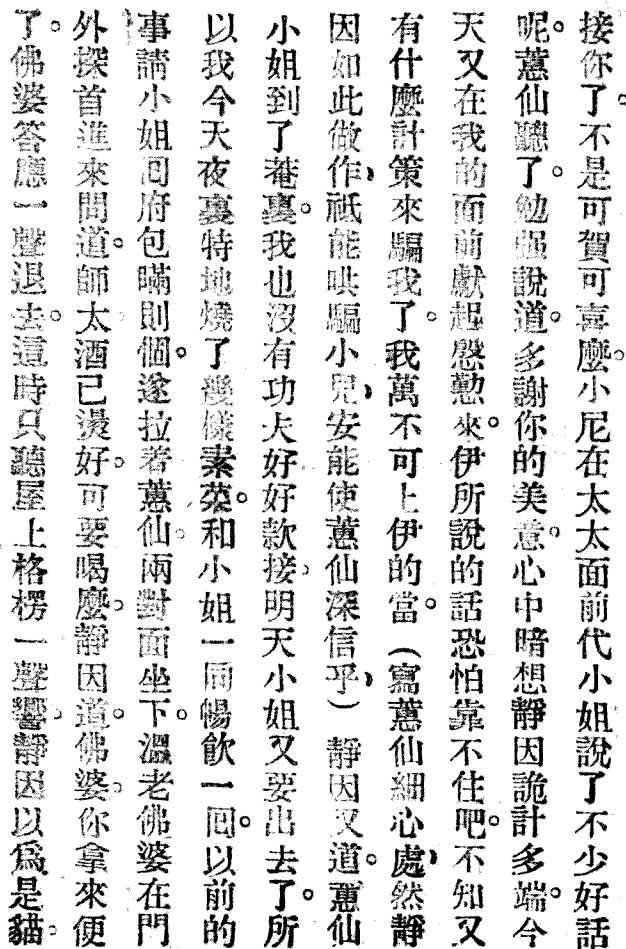 接你了。不是可賀可喜麼。小尼在太太面前代小姐說了不少好話
呢。蕙仙聽了。勉强說道。多謝你的美意。心中暗想靜因詭計多端。今
天又在我的面前獻起慇懃來。伊所說的話恐怕靠不住吧。不知又
有什麼計策來騙我了。我萬不可上伊的當。（寫蕙仙細心處、然靜
因如此做作、祇能哄騙小兒、安能使蕙仙深信乎、）靜因又道。蕙仙
小姐到了菴裏。我也沒有功夫好好款接。明天小姐又要出去了。所
以我今天夜裏特地燒了幾樣素菜。和小姐一同暢飮一回。以前的
事請小姐回府包瞞則個。遂拉着蕙仙。兩對面坐下。溫老佛婆在門
外探首進來問道。師太酒已燙好。可要喝麼。靜因道。佛婆。你拿來便
了。佛婆答應一聲退去。這時只聽屋上格楞一聲響。靜因以爲是貓。